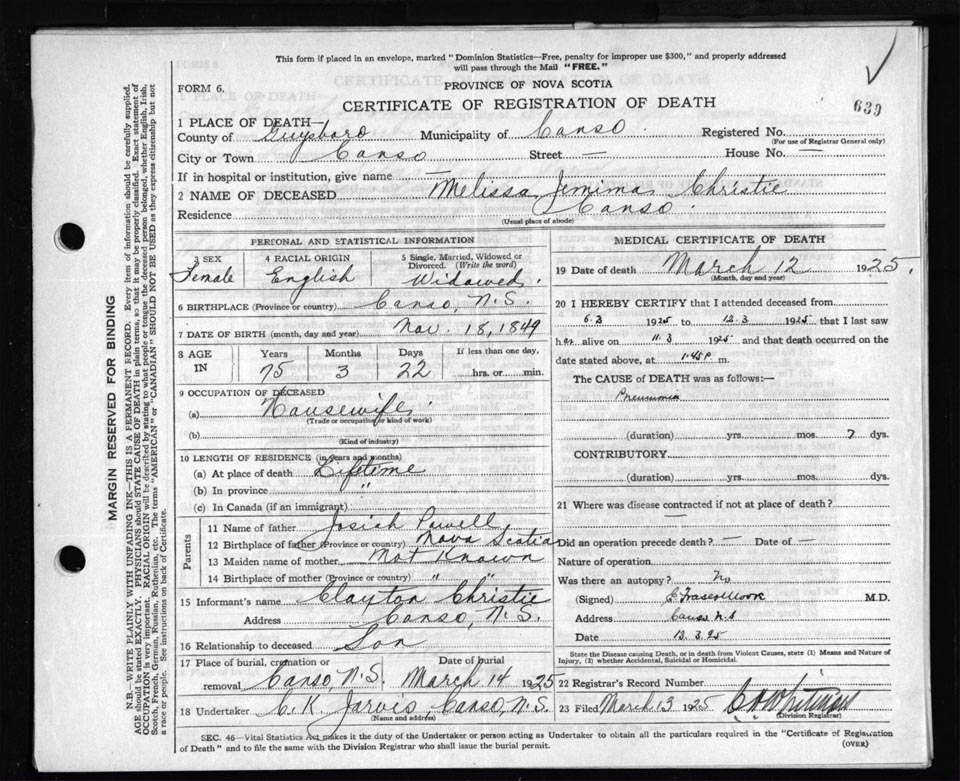 This form if placed in an envelope, marked "Dominion Statistics—Free, penalty for improper use $300," and properly addressed
will pass through the Mail "FREE."
FORM 6.
PROVINCE OF NOVA SCOTIA
CERTIFICATE OF REGISTRATION OF DEATH
639
1 PLACE OF DEATH—
County of Guysboro Municipality of Canso Registered No.
(For use of Registrar General only)
City or Town Canso Street — House No. —
If in hospital or institution, give name —
2 NAME OF DECEASED Melissa Jemima Christie
Residence Canso
(Usual place of abode)
PERSONAL AND STATISTICAL INFORMATION
3 SEX 4 RACIAL ORIGIN 5 Single, Married, Widowed or
Divorced. (Write the word)
Female English Widowed.
6 BIRTHPLACE (Province or country) Canso, N.S.
7 DATE OF BIRTH (month, day and year) Nov. 18, 1849
8 AGE IN Years Months Days If less than one day,
75 3 22 hrs. or min.
9 OCCUPATION OF DECEASED
(a) Housewife
(Trade or occupation or kind of work)
(b)
(Kind of industry)
10 LENGTH OF RESIDENCE (in years and months)
(a) At place of death Lifetime
(b) In province "
(c) In Canada (if an immigrant)
Parents
11 Name of father Josiah Powell
12 Birthplace of father (Province or country) Nova Scotia
13 Maiden name of mother Not Known
14 Birthplace of mother (Province or country) " "
15 Informant's name Clayton Christie
Address Canso, N.S.
16 Relationship to deceased Son
17 Place of burial, cremation or Date of burial
removal Canso, N.S. March 14 1925
18 Undertaker C. K. Jarvis, Canso, N.S.
(Name and address)
MEDICAL CERTIFICATE OF DEATH
19 Date of death March 12 1925.
(Month, day and year)
20 I HEREBY CERTIFY that I attended deceased from
6.3 1925 to 12.3 1925 that I last saw
her alive on 11.3 1925 and that death occurred on the
date stated above, at 1.45 P. m.
The CAUSE OF DEATH was as follows:—
Pneumonia
(duration) yrs. mos. 7 dys.
CONTRIBUTORY
(duration) yrs. mos. dys.
21 Where was disease contracted if not at place of death?
—
Did an operation precede death? — Date of —
Nature of operation
Was there an autopsy? No
(Signed) M.D.
Address Canso N.S
Date 13.3.25
State the Disease causing Death, or in death from Violent Causes, state (1) Means and Nature of
Injury, (2) whether Accidental, Suicidal or Homicidal.
22 Registrar's Record Number
23 Filed March 13 1925
(Division Registrar)
SEC. 46—Vital Statistics Act makes it the duty of the Undertaker or person acting as Undertaker to obtain all the particulars required in the "Certificate of Registration
of Death" and to file the same with the Division Registrar who shall issue the burial permit.
(OVER)
MARGIN RESERVED FOR BINDING
N.B.—WRITE PLAINLY WITH UNFADING INK—THIS IS A PERMANENT RECORD. Every item of information should be carefully supplied.
AGE should be stated EXACTLY. PHYSICIANS should STATE CAUSE OF DEATH in plain terms, so that it may be properly classified. Exact statement of
OCCUPATION is very important. RACIAL ORIGIN will be described by stating to what people or tongue the deceased person belonged, whether English, Irish,
Scotch, French, German, Russian, Ruthenian, etc. The terms "AMERICAN" or "CANADIAN" SHOULD NOT BE USED as they express citizenship but not
a race or people. See instructions on back of Certificate.